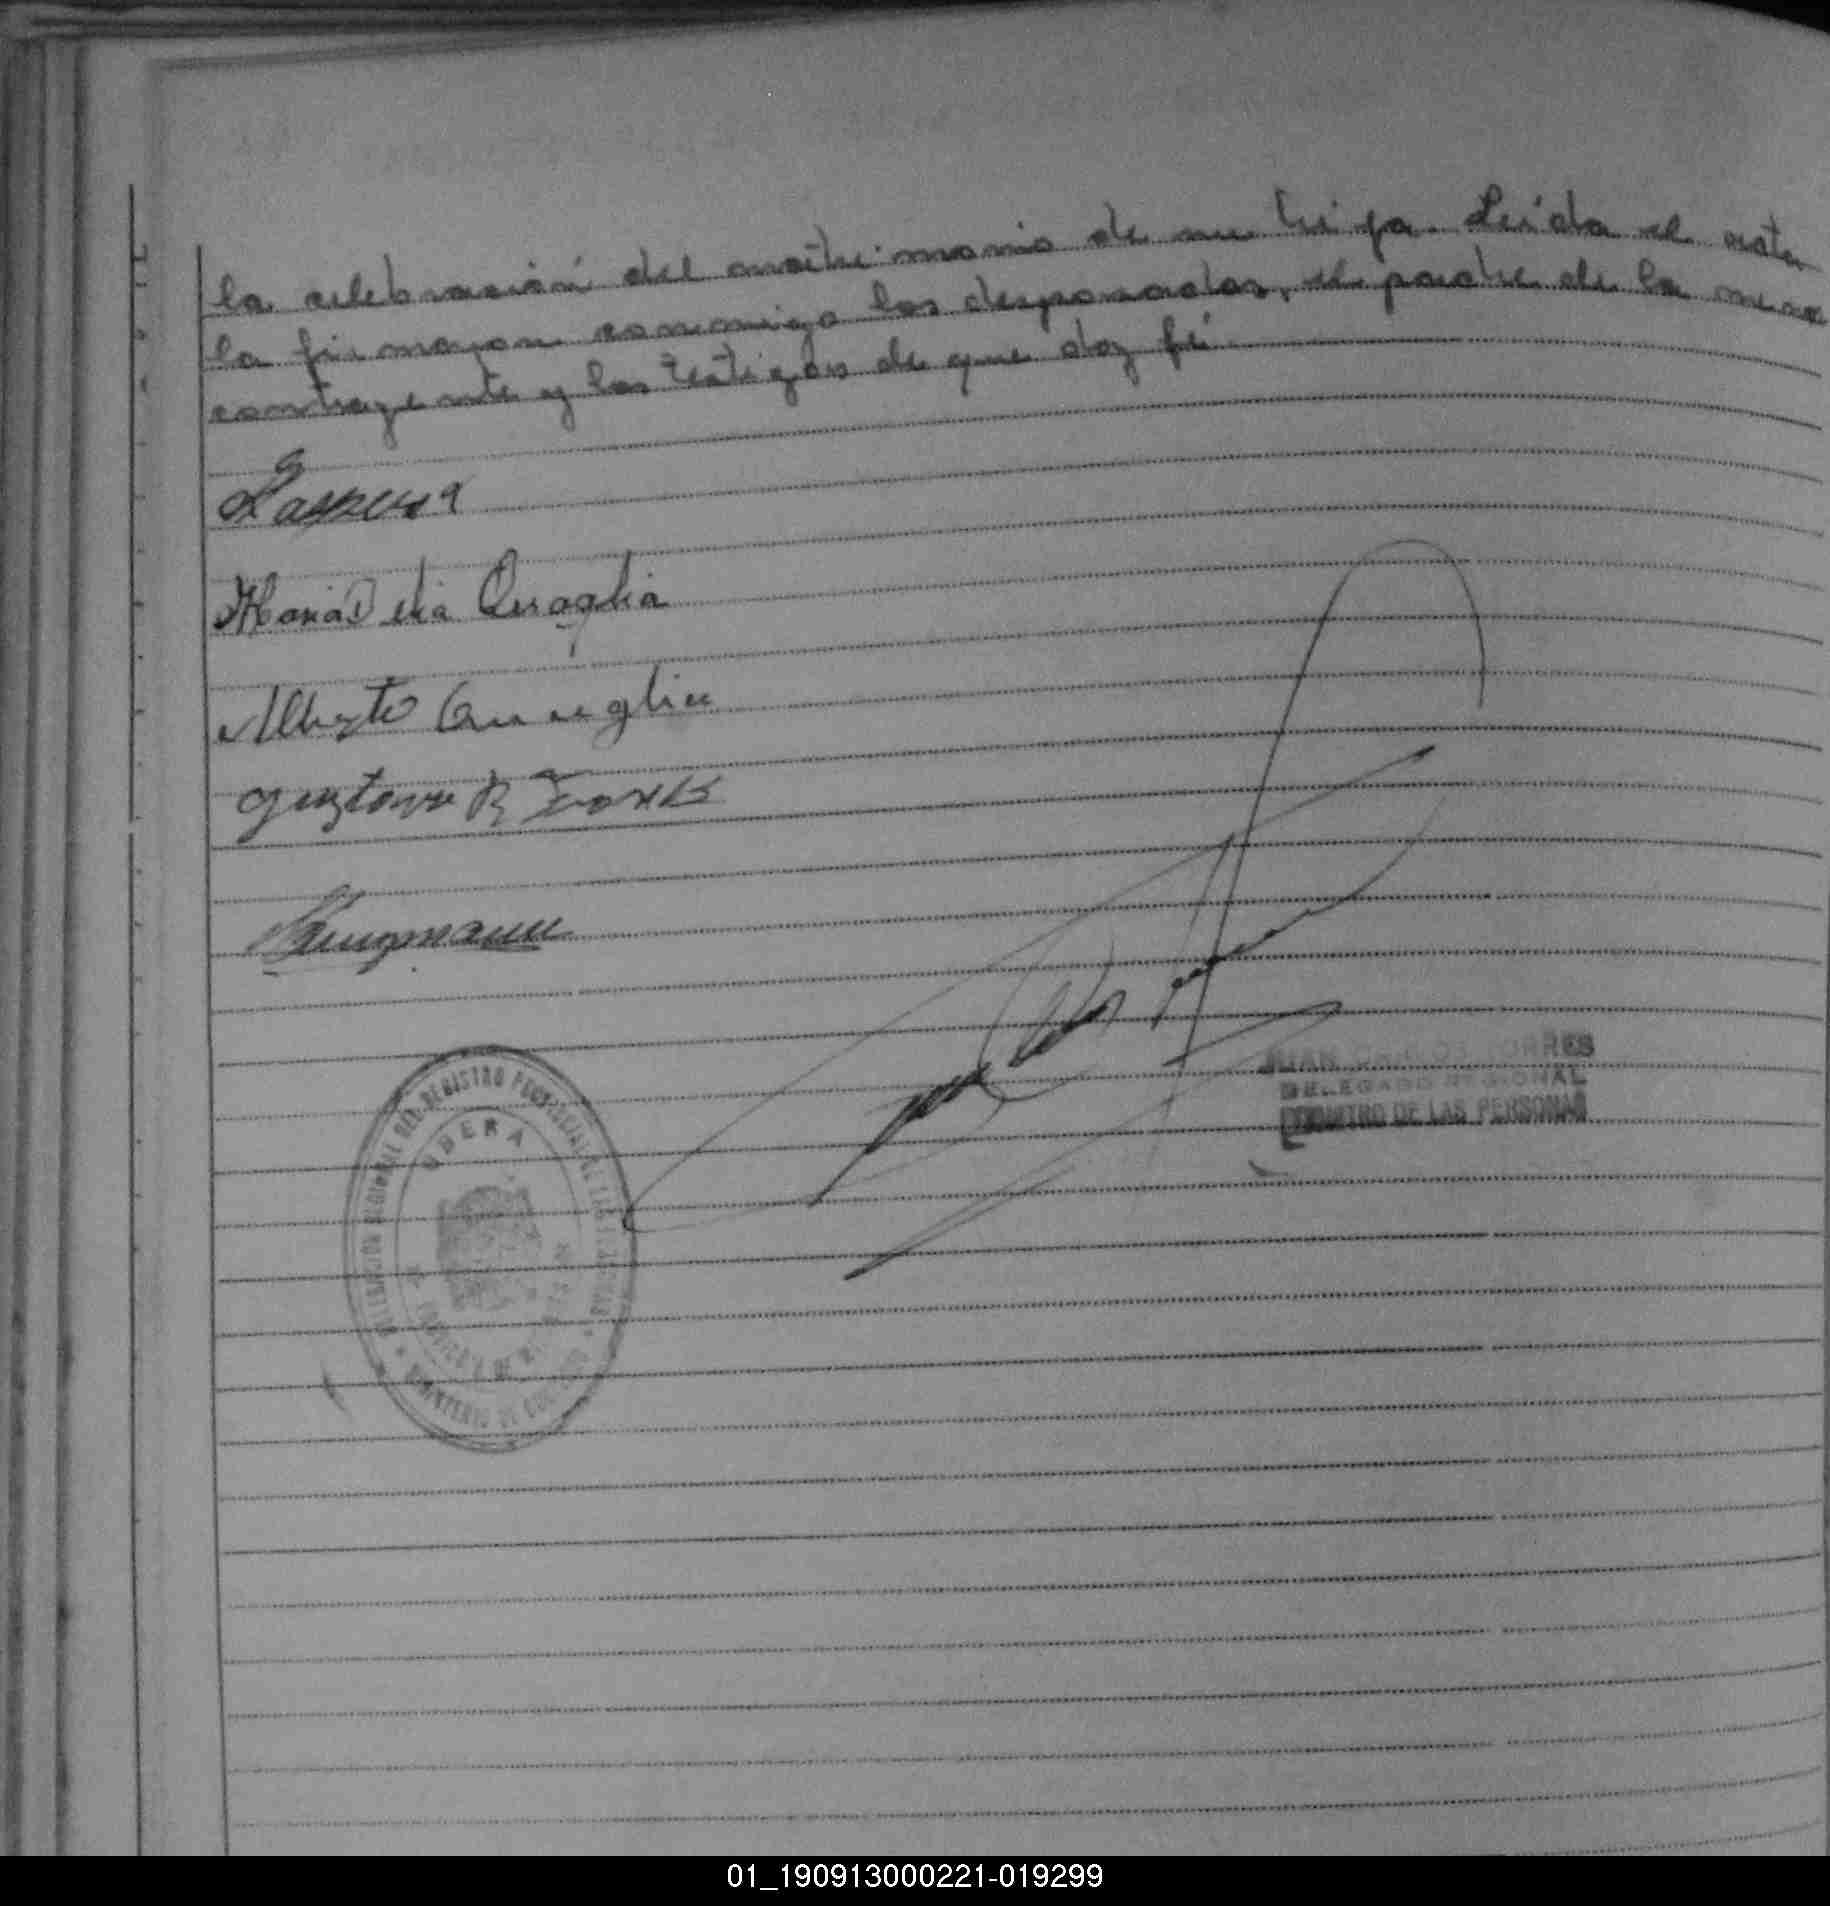 la celebración del matrimonio de su hija. Leída el acta
la firmaron conmigo los desposados, el padre de la menor
contrayente y los testigos de que doy fé.
María Delia Quaglia
Alberto Quaglia
Gustavo R
DELEGACION REGIONAL DEL REGISTRO PROVINCIAL DE LAS PERSONAS
OBERA
MINISTERIO DE GOBIERNO
JUAN CARLOS TORRES
DELEGADO REGIONAL
REGISTRO DE LAS PERSONAS
01_190913000221-019299